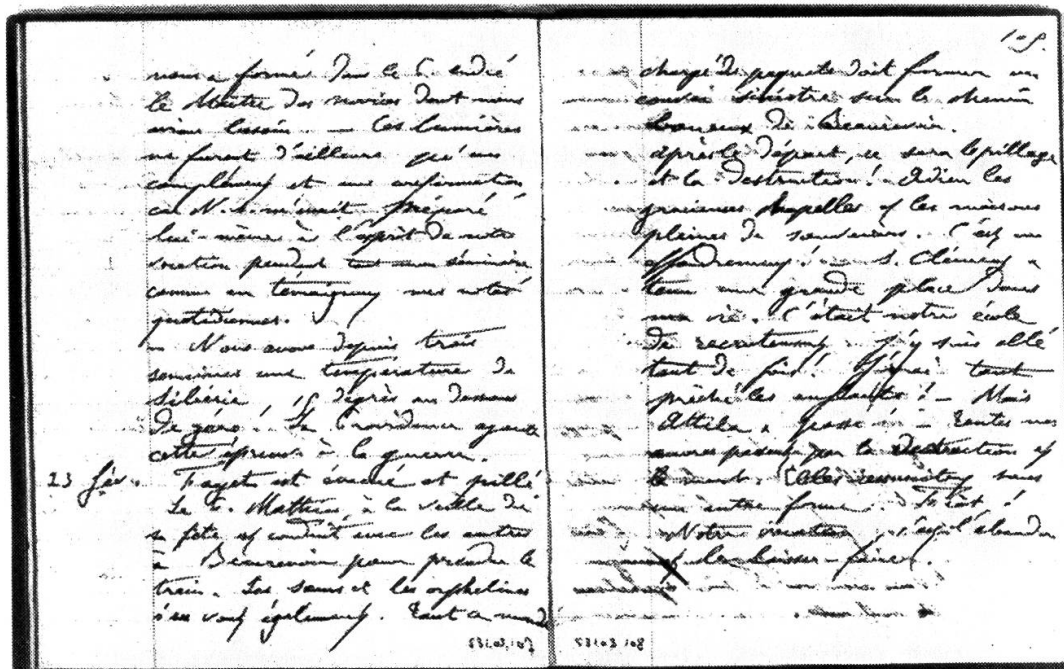 nous a formés dans le P. André
le Maître des novices dont nous
avions besoin. — Ces lumières
ne furent d'ailleurs qu'un
complément et une confirmation
car N. S. m'avait préparé
lui-même à l'esprit de notre
vocation pendant tout mon séminaire
comme en témoignent mes notes
quotidiennes.
— Nous avons depuis trois
semaines une température de
Sibérie, 15 degrés au dessous
de zéro! La Providence ajoute
cette épreuve à la guerre.
23 fév. Fayet est évacué et pillé
Le P. Mathias, à la veille de
sa fête est conduit avec les autres
à Beaurevoir pour prendre le
train. Les sœurs et les orphelines
s'en vont également. Tout ce monde
53103.107
108
chargé de paquets doit former un
convoi sinistre sur le chemin
boueux de Beaurevoir.
Après le départ, ce sera le pillage
et la destruction! Adieu les
gracieuses chapelles et les maisons
pleines de souvenirs. C'est un
effondrement! S. Clément a
tenu une grande place dans
ma vie. C'était notre école
de recrutement. J'y suis allé
tant de fois! J'y ai tant
prêché les enfants! — Mais
Attila a passé — Toutes nos
œuvres passent par la destruction et
la mort. Elles ressuscitent sous
une autre forme. Fiat!
Notre vocation, c'est l'abandon
le laisser-faire.
53103.108